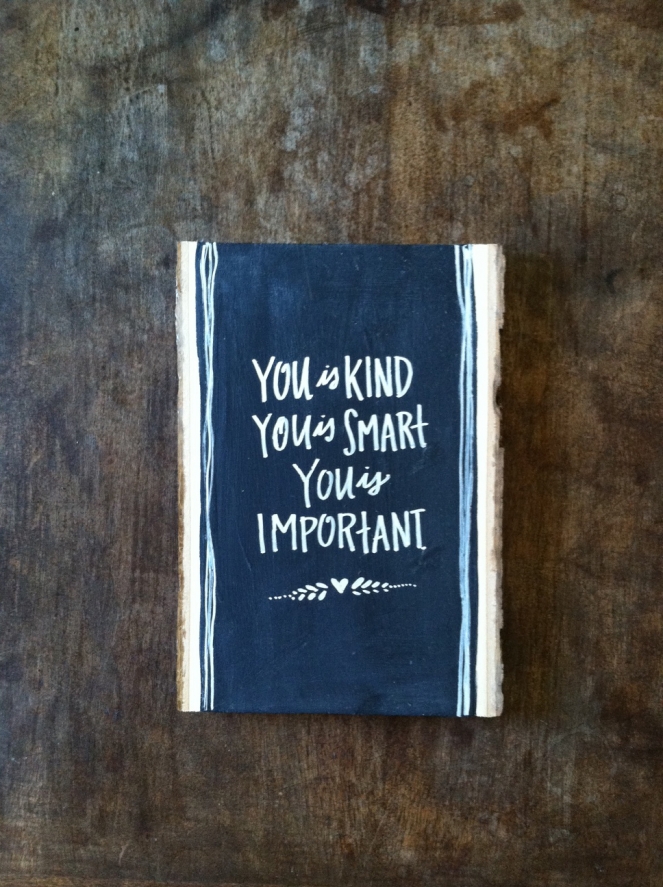 YOU is KIND
YOU is SMARt
YOU is
IMPORtANT